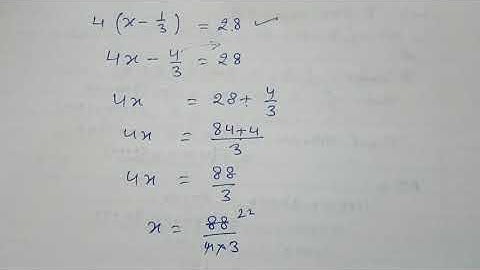 4 (x - 1/3) = 28 ✓
4x - 4/3 = 28
4x = 28 + 4/3
4x = 84+4/3
4x = 88/3
x = 88 22/4×3